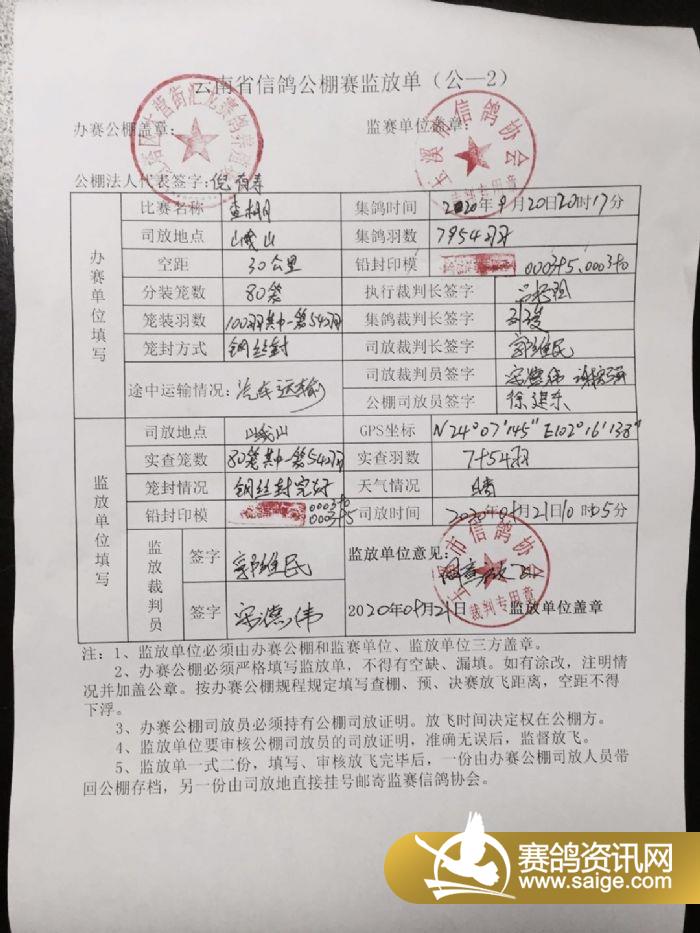 云南省信鸽公棚赛监放单（公—2）
办赛公棚盖章： 监赛单位盖章：
公棚法人代表签字：倪有寿
玉溪市信鸽协会
裁判专用章
办赛单位填写
比赛名称 查棚 集鸽时间 2020年9月20日20时17分
司放地点 峨山 集鸽羽数 7954羽
空距 30公里 铅封印模
分装笼数 80笼 执行裁判长签字
笼装羽数 100羽其中一笼54羽 集鸽裁判长签字
笼封方式 钢丝封 司放裁判长签字 郭维民
途中运输情况：汽车运输 司放裁判员签字
公棚司放员签字 徐建东
监放单位填写
司放地点 峨山 GPS坐标 N24°07′145″ E102°16′138″
实查笼数 80笼其中一笼54羽 实查羽数 7954羽
笼封情况 钢丝封完好 天气情况 晴
铅封印模 司放时间 2020年09月21日10时05分
监放裁判员
签字 郭维民
签字
监放单位意见：
玉溪市信鸽协会
裁判专用章
2020年09月21日 监放单位盖章
注：1、监放单位必须由办赛公棚和监赛单位、监放单位三方盖章。
2、办赛公棚必须严格填写监放单，不得有空缺、漏填。如有涂改，注明情
况并加盖公章。按办赛公棚规程规定填写查棚、预、决赛放飞距离，空距不得
下浮。
3、办赛公棚司放员必须持有公棚司放证明。放飞时间决定权在公棚方。
4、监放单位要审核公棚司放员的司放证明，准确无误后，监督放飞。
5、监放单一式二份，填写、审核放飞完毕后，一份由办赛公棚司放人员带
回公棚存档，另一份由司放地直接挂号邮寄监赛信鸽协会。
赛鸽资讯网
www.saige.com